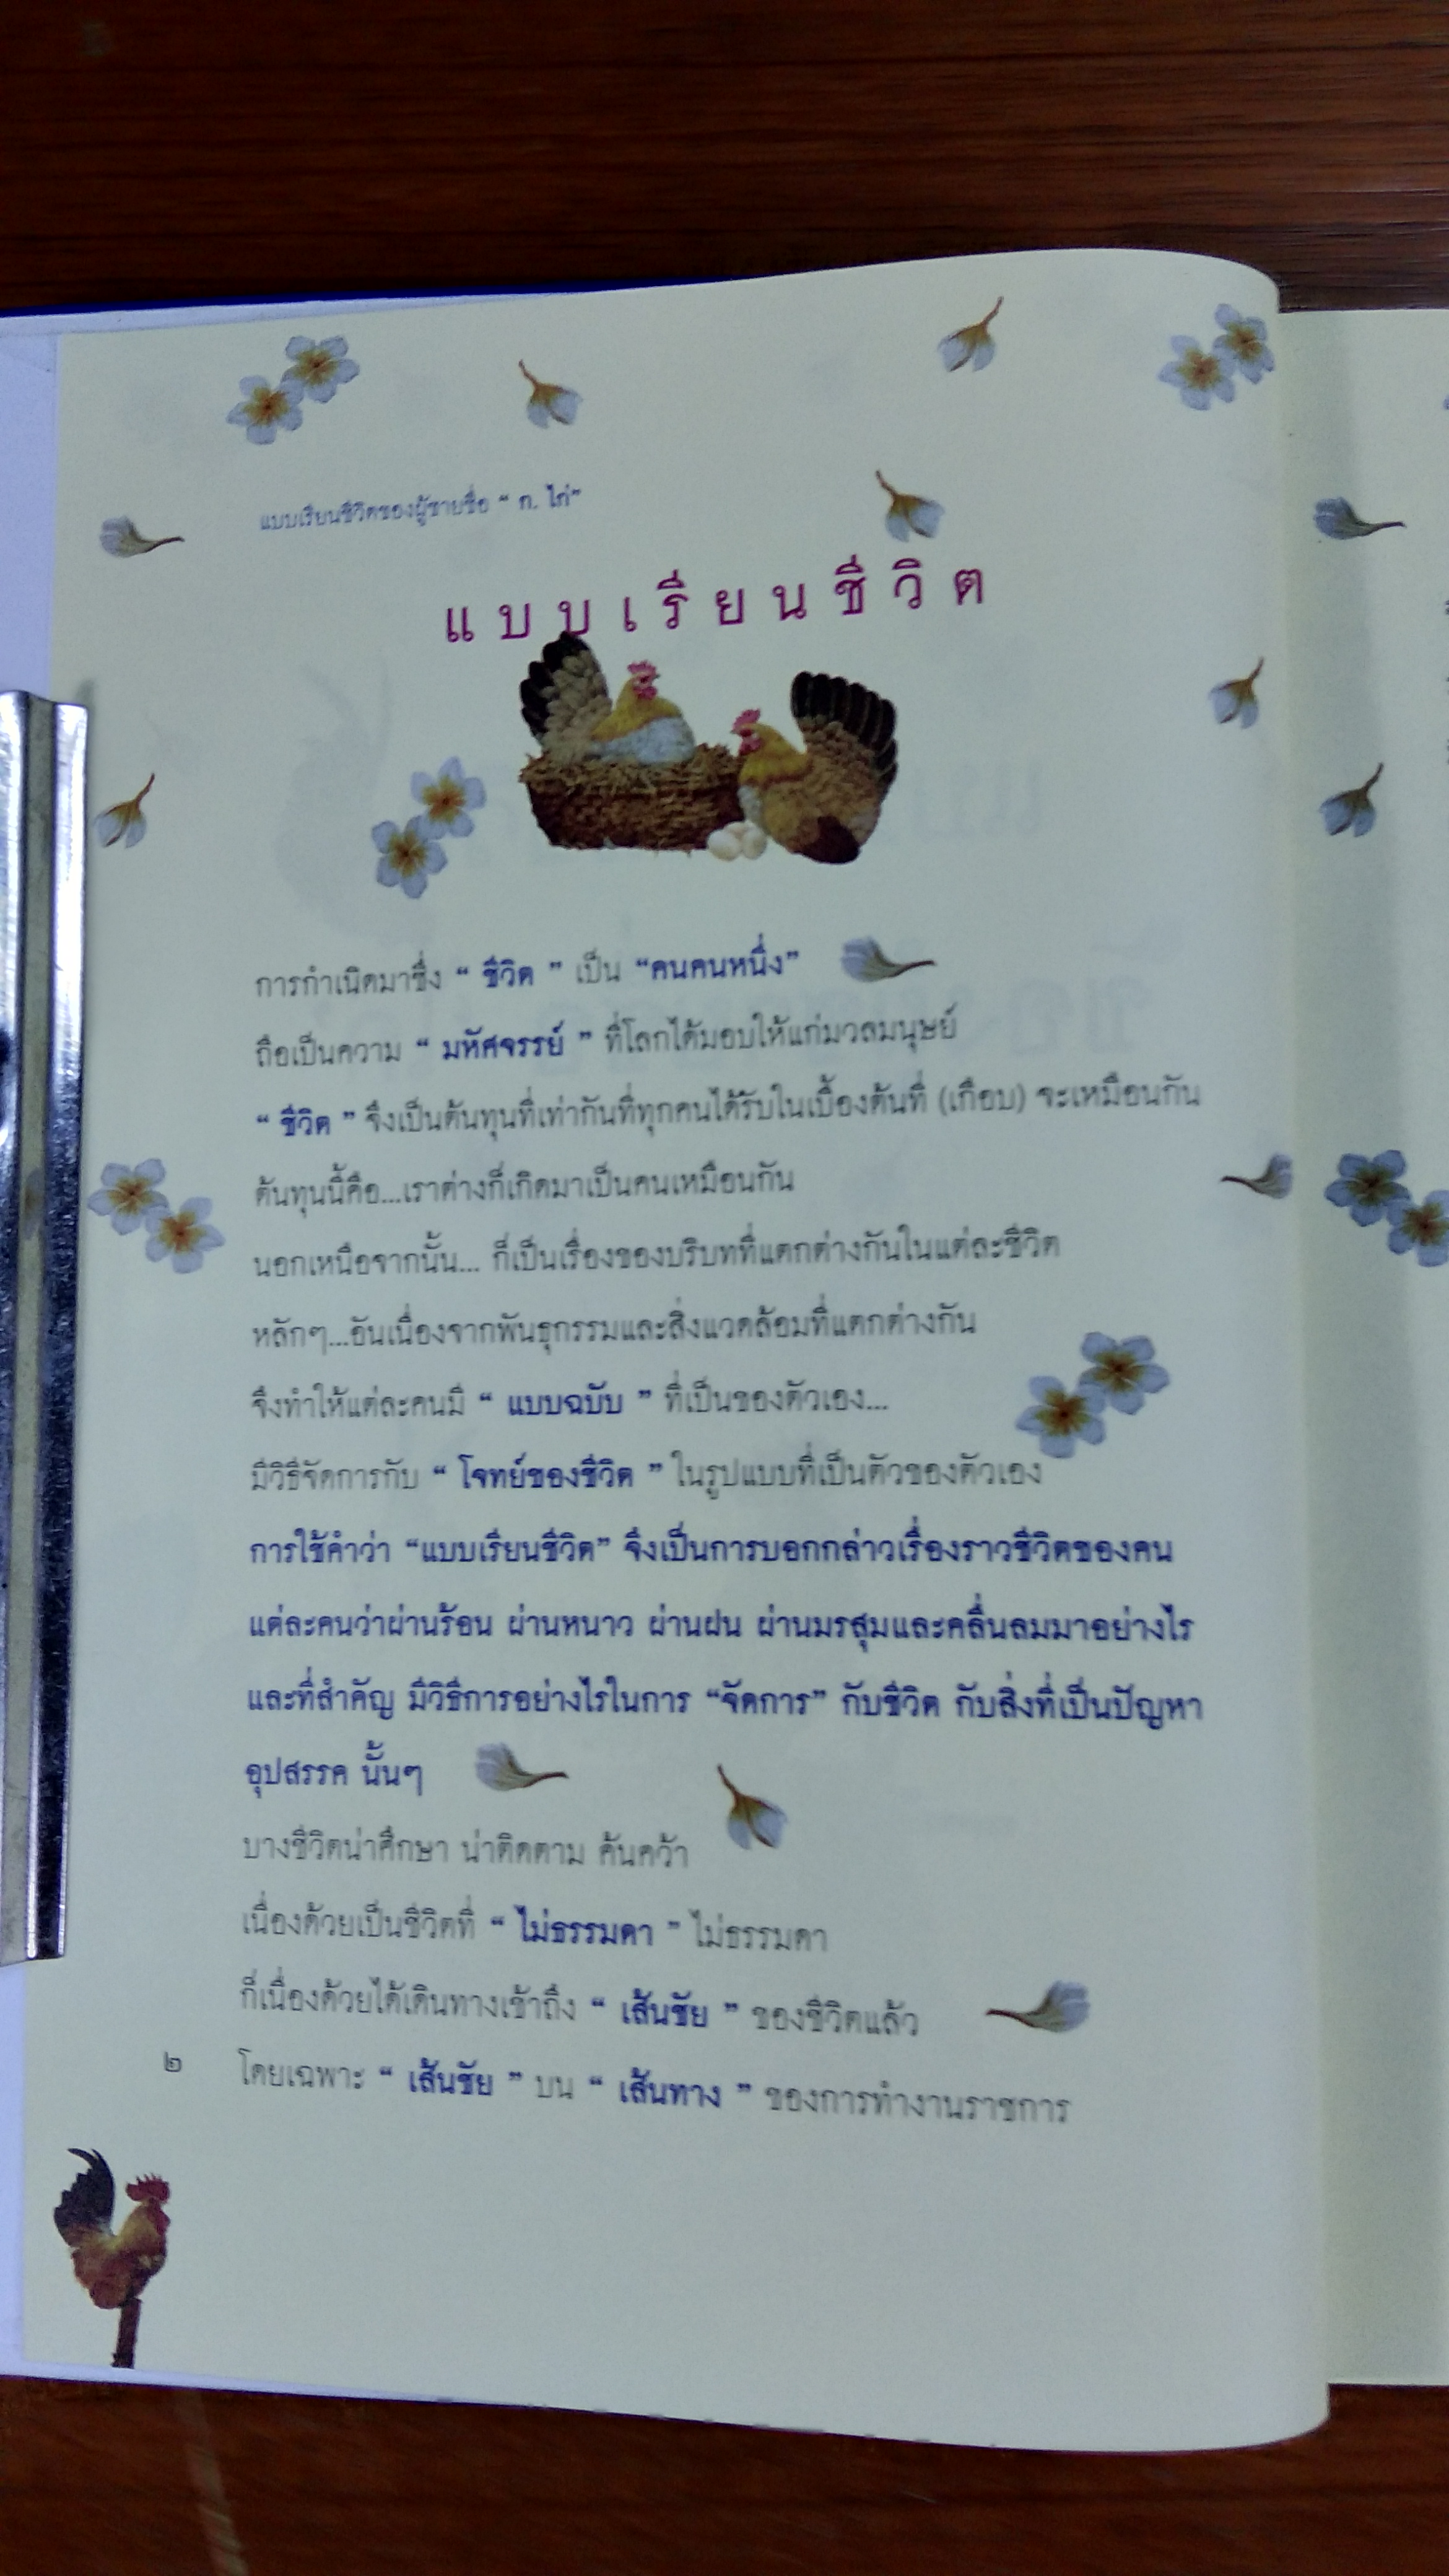 แบบเรียนชีวิตของผู้ชายชื่อ “ ก. ไก่”
แบบเรียนชีวิต
การกำเนิดมาซึ่ง “ ชีวิต ” เป็น “คนคนหนึ่ง”
ถือเป็นความ “ มหัศจรรย์ ” ที่โลกได้มอบให้แก่มวลมนุษย์
“ ชีวิต ” จึงเป็นต้นทุนที่เท่ากันที่ทุกคนได้รับในเบื้องต้นที่ (เกือบ) จะเหมือนกัน
ต้นทุนนี้คือ...เราต่างก็เกิดมาเป็นคนเหมือนกัน
นอกเหนือจากนั้น... ก็เป็นเรื่องของบริบทที่แตกต่างกันในแต่ละชีวิต
หลักๆ...อันเนื่องจากพันธุกรรมและสิ่งแวดล้อมที่แตกต่างกัน
จึงทำให้แต่ละคนมี “ แบบฉบับ ” ที่เป็นของตัวเอง...
มีวิธีจัดการกับ “ โจทย์ของชีวิต ” ในรูปแบบที่เป็นตัวของตัวเอง
การใช้คำว่า “แบบเรียนชีวิต” จึงเป็นการบอกกล่าวเรื่องราวชีวิตของคน
แต่ละคนว่าผ่านร้อน ผ่านหนาว ผ่านฝน ผ่านมรสุมและคลื่นลมมาอย่างไร
และที่สำคัญ มีวิธีการอย่างไรในการ “จัดการ” กับชีวิต กับสิ่งที่เป็นปัญหา
อุปสรรค นั้นๆ
บางชีวิตน่าศึกษา น่าติดตาม ค้นคว้า
เนื่องด้วยเป็นชีวิตที่ “ ไม่ธรรมดา ” ไม่ธรรมดา
ก็เนื่องด้วยได้เดินทางเข้าถึง “ เส้นชัย ” ของชีวิตแล้ว
โดยเฉพาะ “ เส้นชัย ” บน “ เส้นทาง ” ของการทำงานราชการ
๒